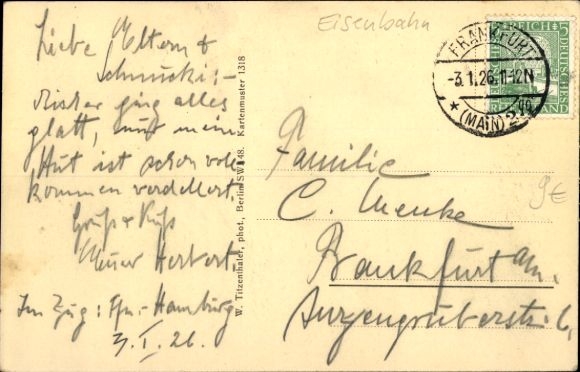 Eisenbahn
Liebe Eltern &
Schnucki:-
Bisher ging alles
glatt, nur mein
Hut ist schon voll
kommen verdellert.
Gruß & Kuß
Euer Herbert.
Im Zug: Ffm.-Hamburg
3. I. 26.
W. Titzenthaler, phot., Berlin SW 48. Kartenmuster 1318
DEUTSCHES REICH
FRANKFURT
-3.1.26.11-12N
* (MAIN) 2
Familie
C. Menke
Frankfurt a/m.
Anzengruberstr. 6,
9€